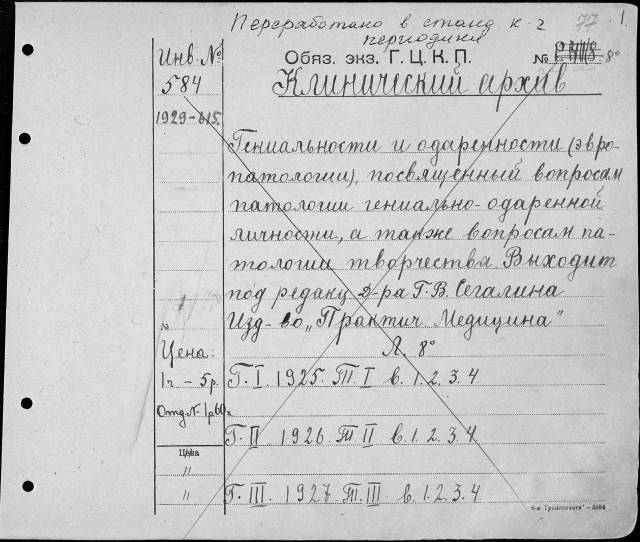 Переработано в станд. к-г
периодики
77
1.
Инв. №
584
1929-615.
Обяз. экз. Г. Ц. К. П.
№
8°
Клинический архив
Гениальности и одаренности (эвро-
патологии), посвященный вопросам
патологии гениально-одаренной
личности, а также вопросам па-
тологии творчества. Выходит
под редакц. Д-ра Г. В. Сегалина
Изд-во „Практич. Медицина"
Л. 8°
№
Цена:
1 г. – 5 р.
Г. I. 1925. Т. I в. 1. 2. 3. 4
Отд. № 1 р 60 к
Г. II 1926. Т II в. 1. 2. 3. 4
Цена
"
"
Г. III. 1927. Т. III. в. 1. 2. 3. 4